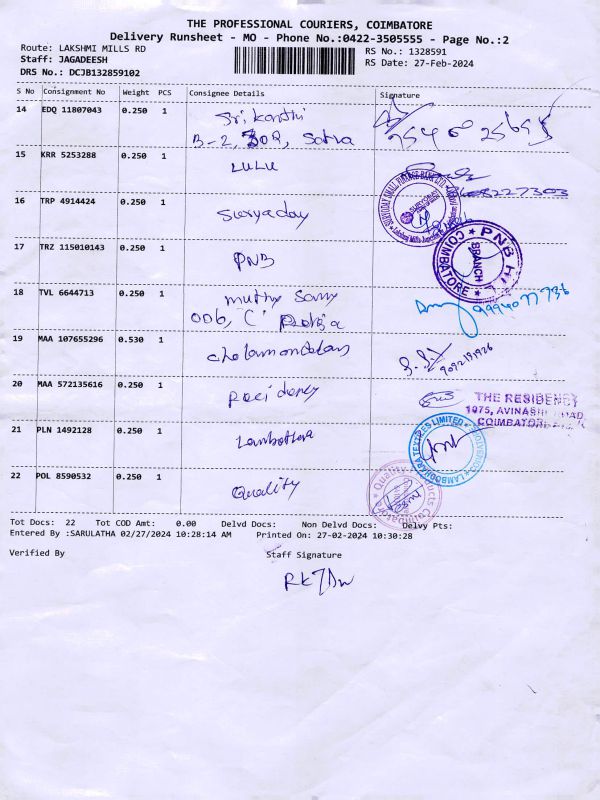 THE PROFESSIONAL COURIERS, COIMBATORE
Delivery Runsheet - MO - Phone No.:0422-3505555 - Page No.:2
Route: LAKSHMI MILLS RD
RS No.: 1328591
Staff: JAGADEESH
RS Date: 27-Feb-2024
DRS No.: DCJB132859102
S No Consignment No Weight PCS Consignee Details Signature
14 EDQ 11807043 0.250 1 Srikanthi
B-2, 302,
15 KRR 5253288 0.250 1 LULU
16 TRP 4914424 0.250 1 Suryaday
17 TRZ 115010143 0.250 1 PNB
PNB
COIMBATORE
BRANCH
18 TVL 6644713 0.250 1 muthu Samy
006, 'C'
9994077736
19 MAA 107655296 0.530 1
20 MAA 572135616 0.250 1
THE RESIDENCY
1075, AVINASHI ROAD,
COIMBATORE
21 PLN 1492128 0.250 1
22 POL 8590532 0.250 1 Quality
Tot Docs: 22 Tot COD Amt: 0.00 Delvd Docs: Non Delvd Docs: Delvy Pts:
Entered By :SARULATHA 02/27/2024 10:28:14 AM Printed On: 27-02-2024 10:30:28
Verified By Staff Signature